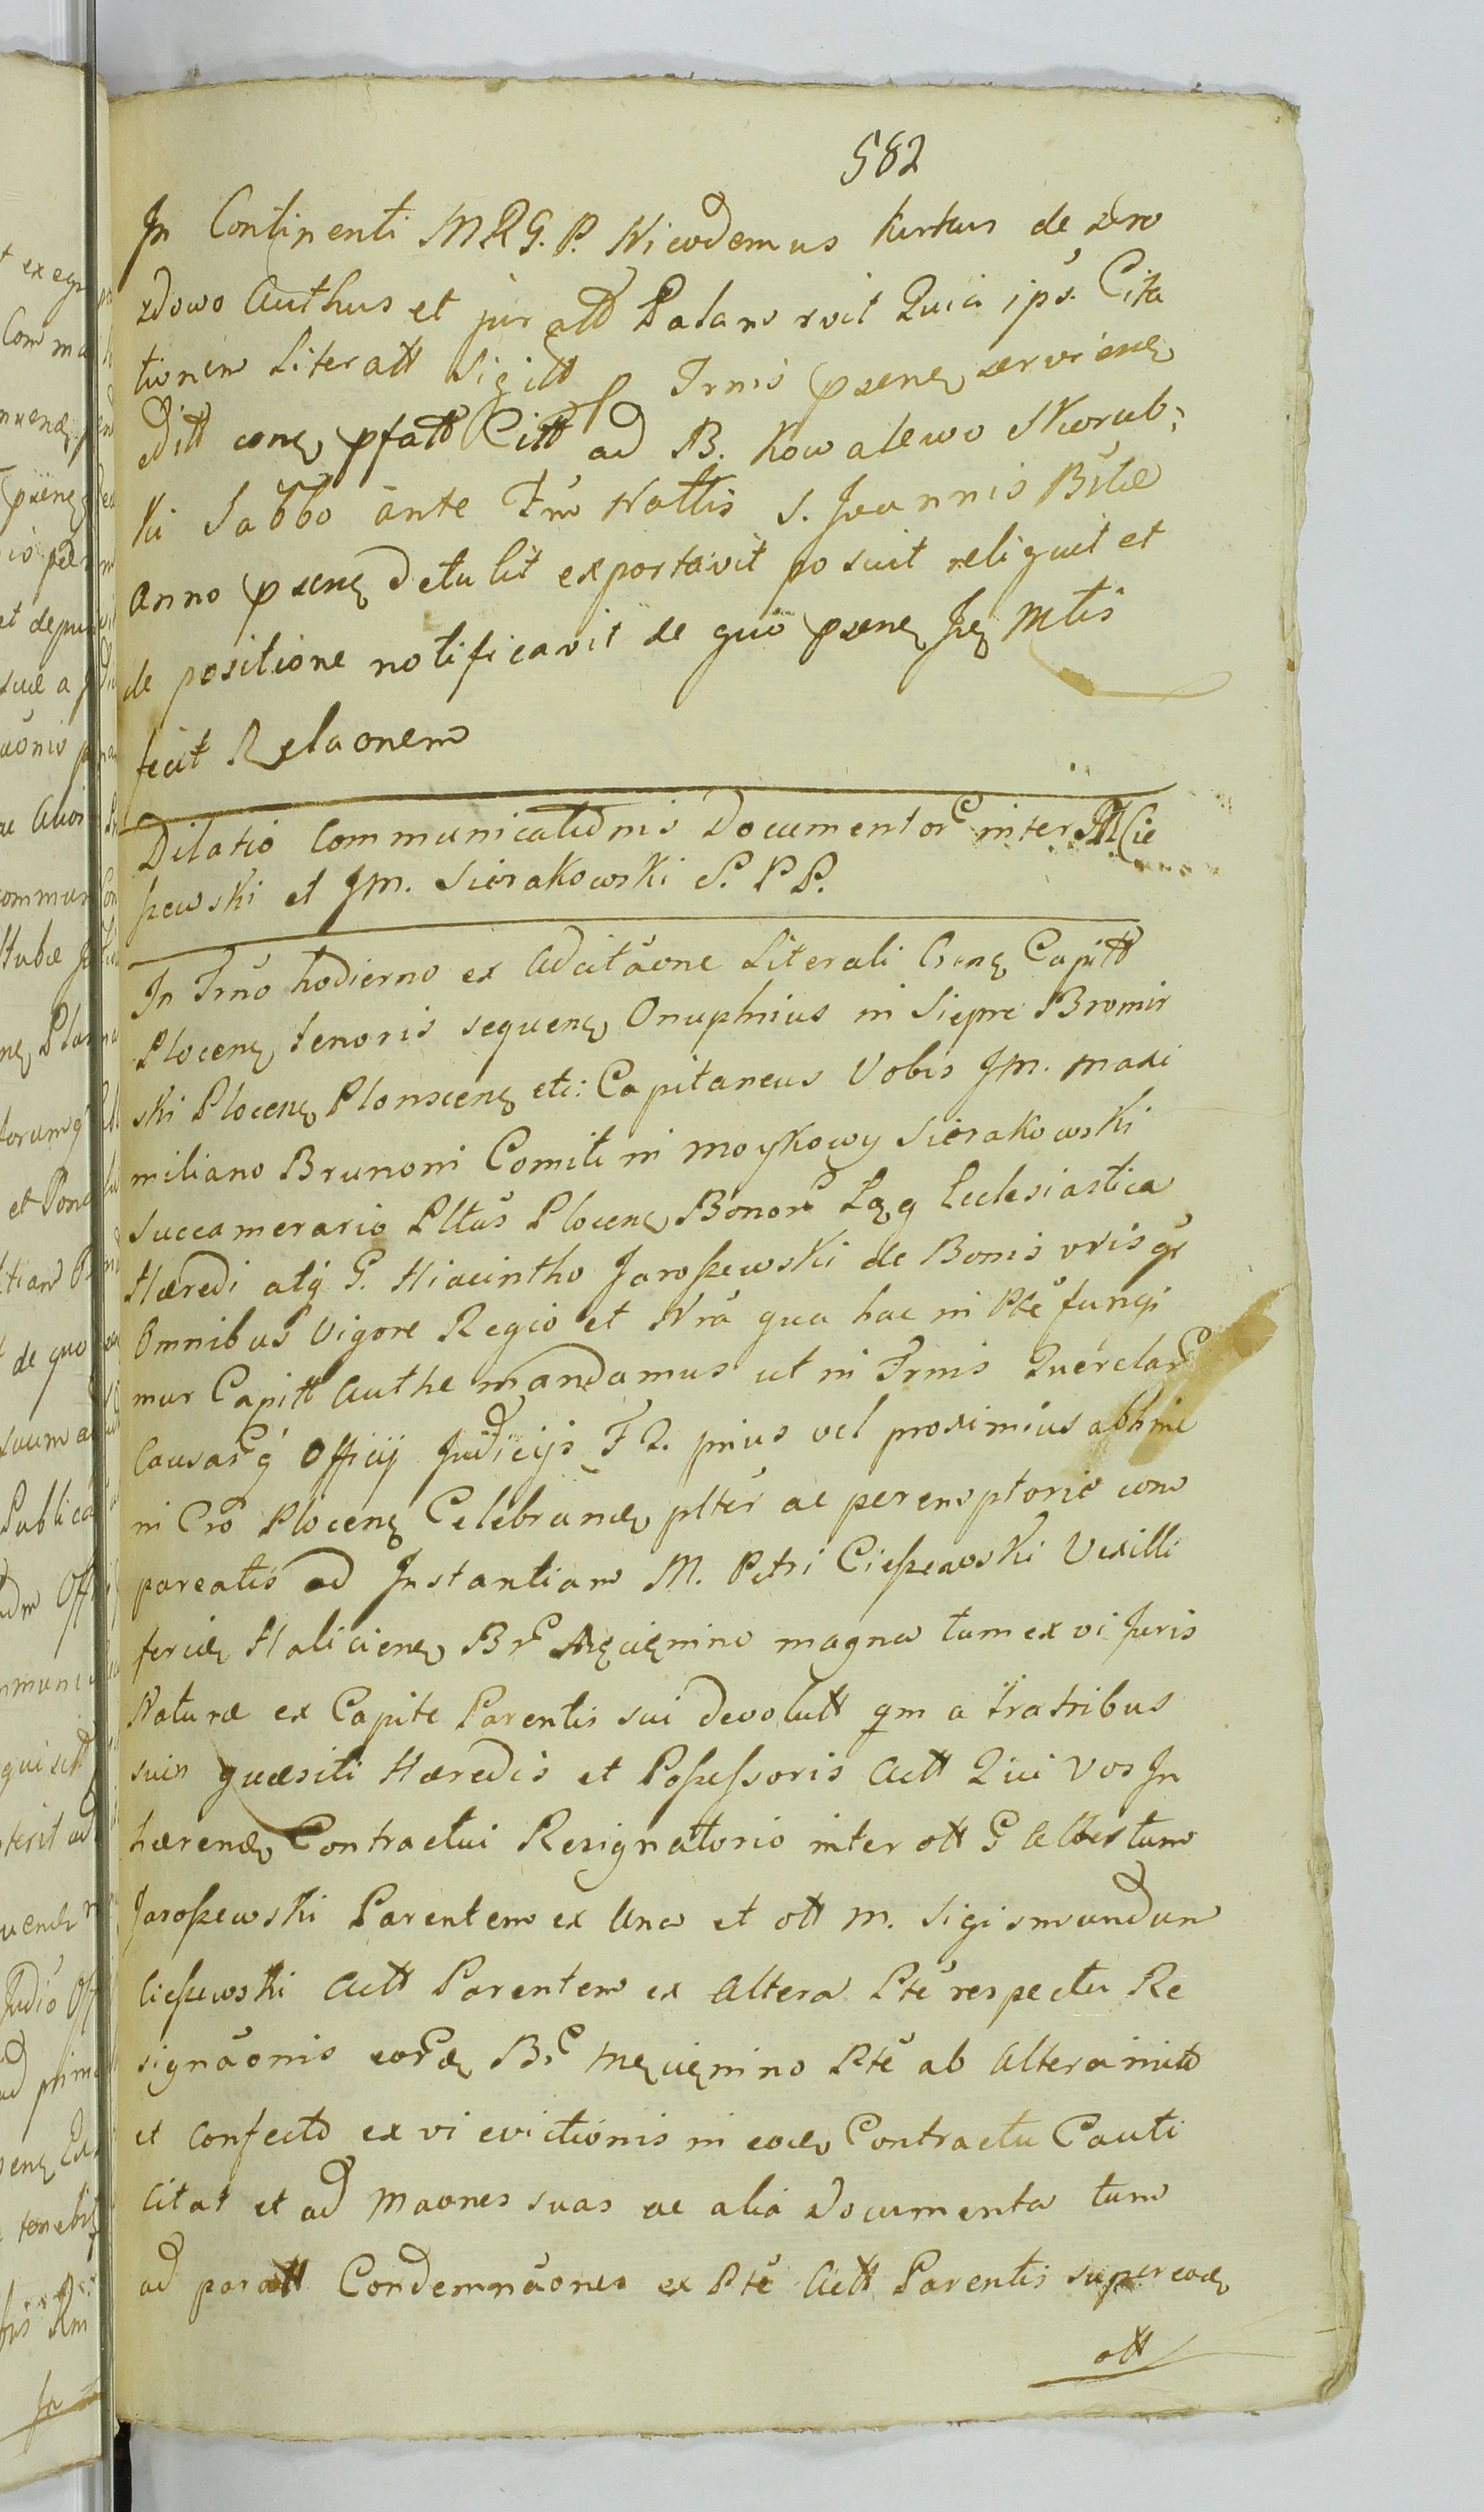 582
In Continenti M R G. P. Nicodemus Kurkus de
zdowo Authus et jur att Palam rvit Quia ips. Cita
tionem Literatt Sigitt p Trnis psenę servienę
ditt conę pfatt Citt ad B. Kowalewo Skorub:
ki Sabbo ante Fm Nattis S. Joannis Btæ
Anno psenę detulit exportavit posuit reliquit et
de positione notificavit de quo psenę Mtis
fecit Relaonem
Dilatio Communicationis Documentor inter M Cie
szewski et JM. Sierakowski S. P P.
In Trno hodierno ex Adcitaone Literali Capitt
Plocenę tenoris sequenę Onuphrius in Siepre Bromir
ski Plocenę Plonscenę etc: Capitaneus Vobis JM. maxi
miliano Brunoni Comiti in moykowy Sierakowski
Succamerario Pltus Plocenę Bonor Łęg Ecclesiastica
Hæredi atq G. Hiacintho Jaroszewski de Bonis vris qr
Omnibus Vigore Regio et Nra qua hac in Pte fungi
mur Capitt Authe mandamus ut in Trnis Querelar
Causarq Officij Judicijs F Q. prius vel proximius abhinc
in Cro Plocenę Celebrandę plter ac peremptorie com
pareatis ad Instantiam M. Petri Cieszewski Vexilli
feridę Halicienę Br Męcięnino magna tum ex vi Juris
Naturæ ex Capite Parentis sui devolutt qm a fratribus
suis quæsiti Hæredis et Poszeszoris Actt Qui Vos In
hærendę Contractui Resignatorio inter ott G Albertum
Jaroszewski Parentem ex Una et ott M. Sigismundum
Cieszewski Actt Parentem ex Altera Pte respectu Re
signaonis eorde Br Męcięnino Pte ab Altera inito
et confecto ex vi evictionis in eode Contractu Cauti
Citat et ad Maones suas ac alia Documenta tum
ad paratt Condemnaones ex Pte Actt Parentis super eode
ott